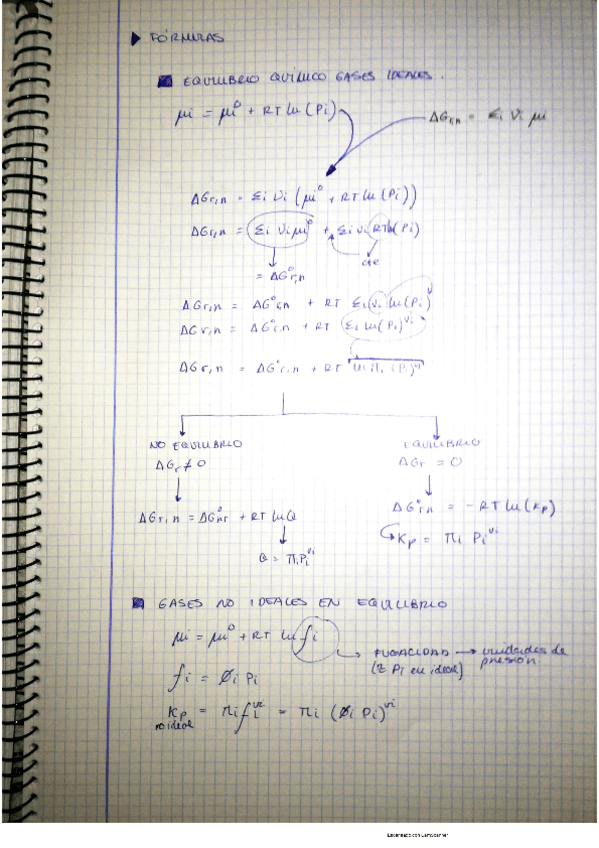 ▶ FÓRMULAS
■ EQUILIBRIO QUÍMICO GASES IDEALES.
μi = μi° + RT ln (Pi)
ΔGr,n = Σi νi μi
ΔGr,n = Σi νi (μi° + RT ln (Pi))
ΔGr,n = Σi νi μi° + Σi νi RT ln (Pi)
cte
= ΔG°r,n
ΔGr,n = ΔG°r,n + RT Σi νi ln (Pi)
ΔGr,n = ΔG°r,n + RT Σi ln (Pi)^νi
ΔGr,n = ΔG°r,n + RT ln Πi (Pi)^νi
NO EQUILIBRIO
ΔGr ≠ 0
ΔGr,n = ΔG° + RT ln Q
Q = Πi Pi^νi
EQUILIBRIO
ΔGr = 0
ΔG°r,n = -RT ln (Kp)
Kp = Πi Pi^νi
■ GASES NO IDEALES EN EQUILIBRIO
μi = μi° + RT ln fi
FUGACIDAD → unidades de presión
(≈ Pi en ideal)
fi = Øi Pi
Kp no ideal = Πi fi^νi = Πi (Øi Pi)^νi
Escaneado con CamScanner